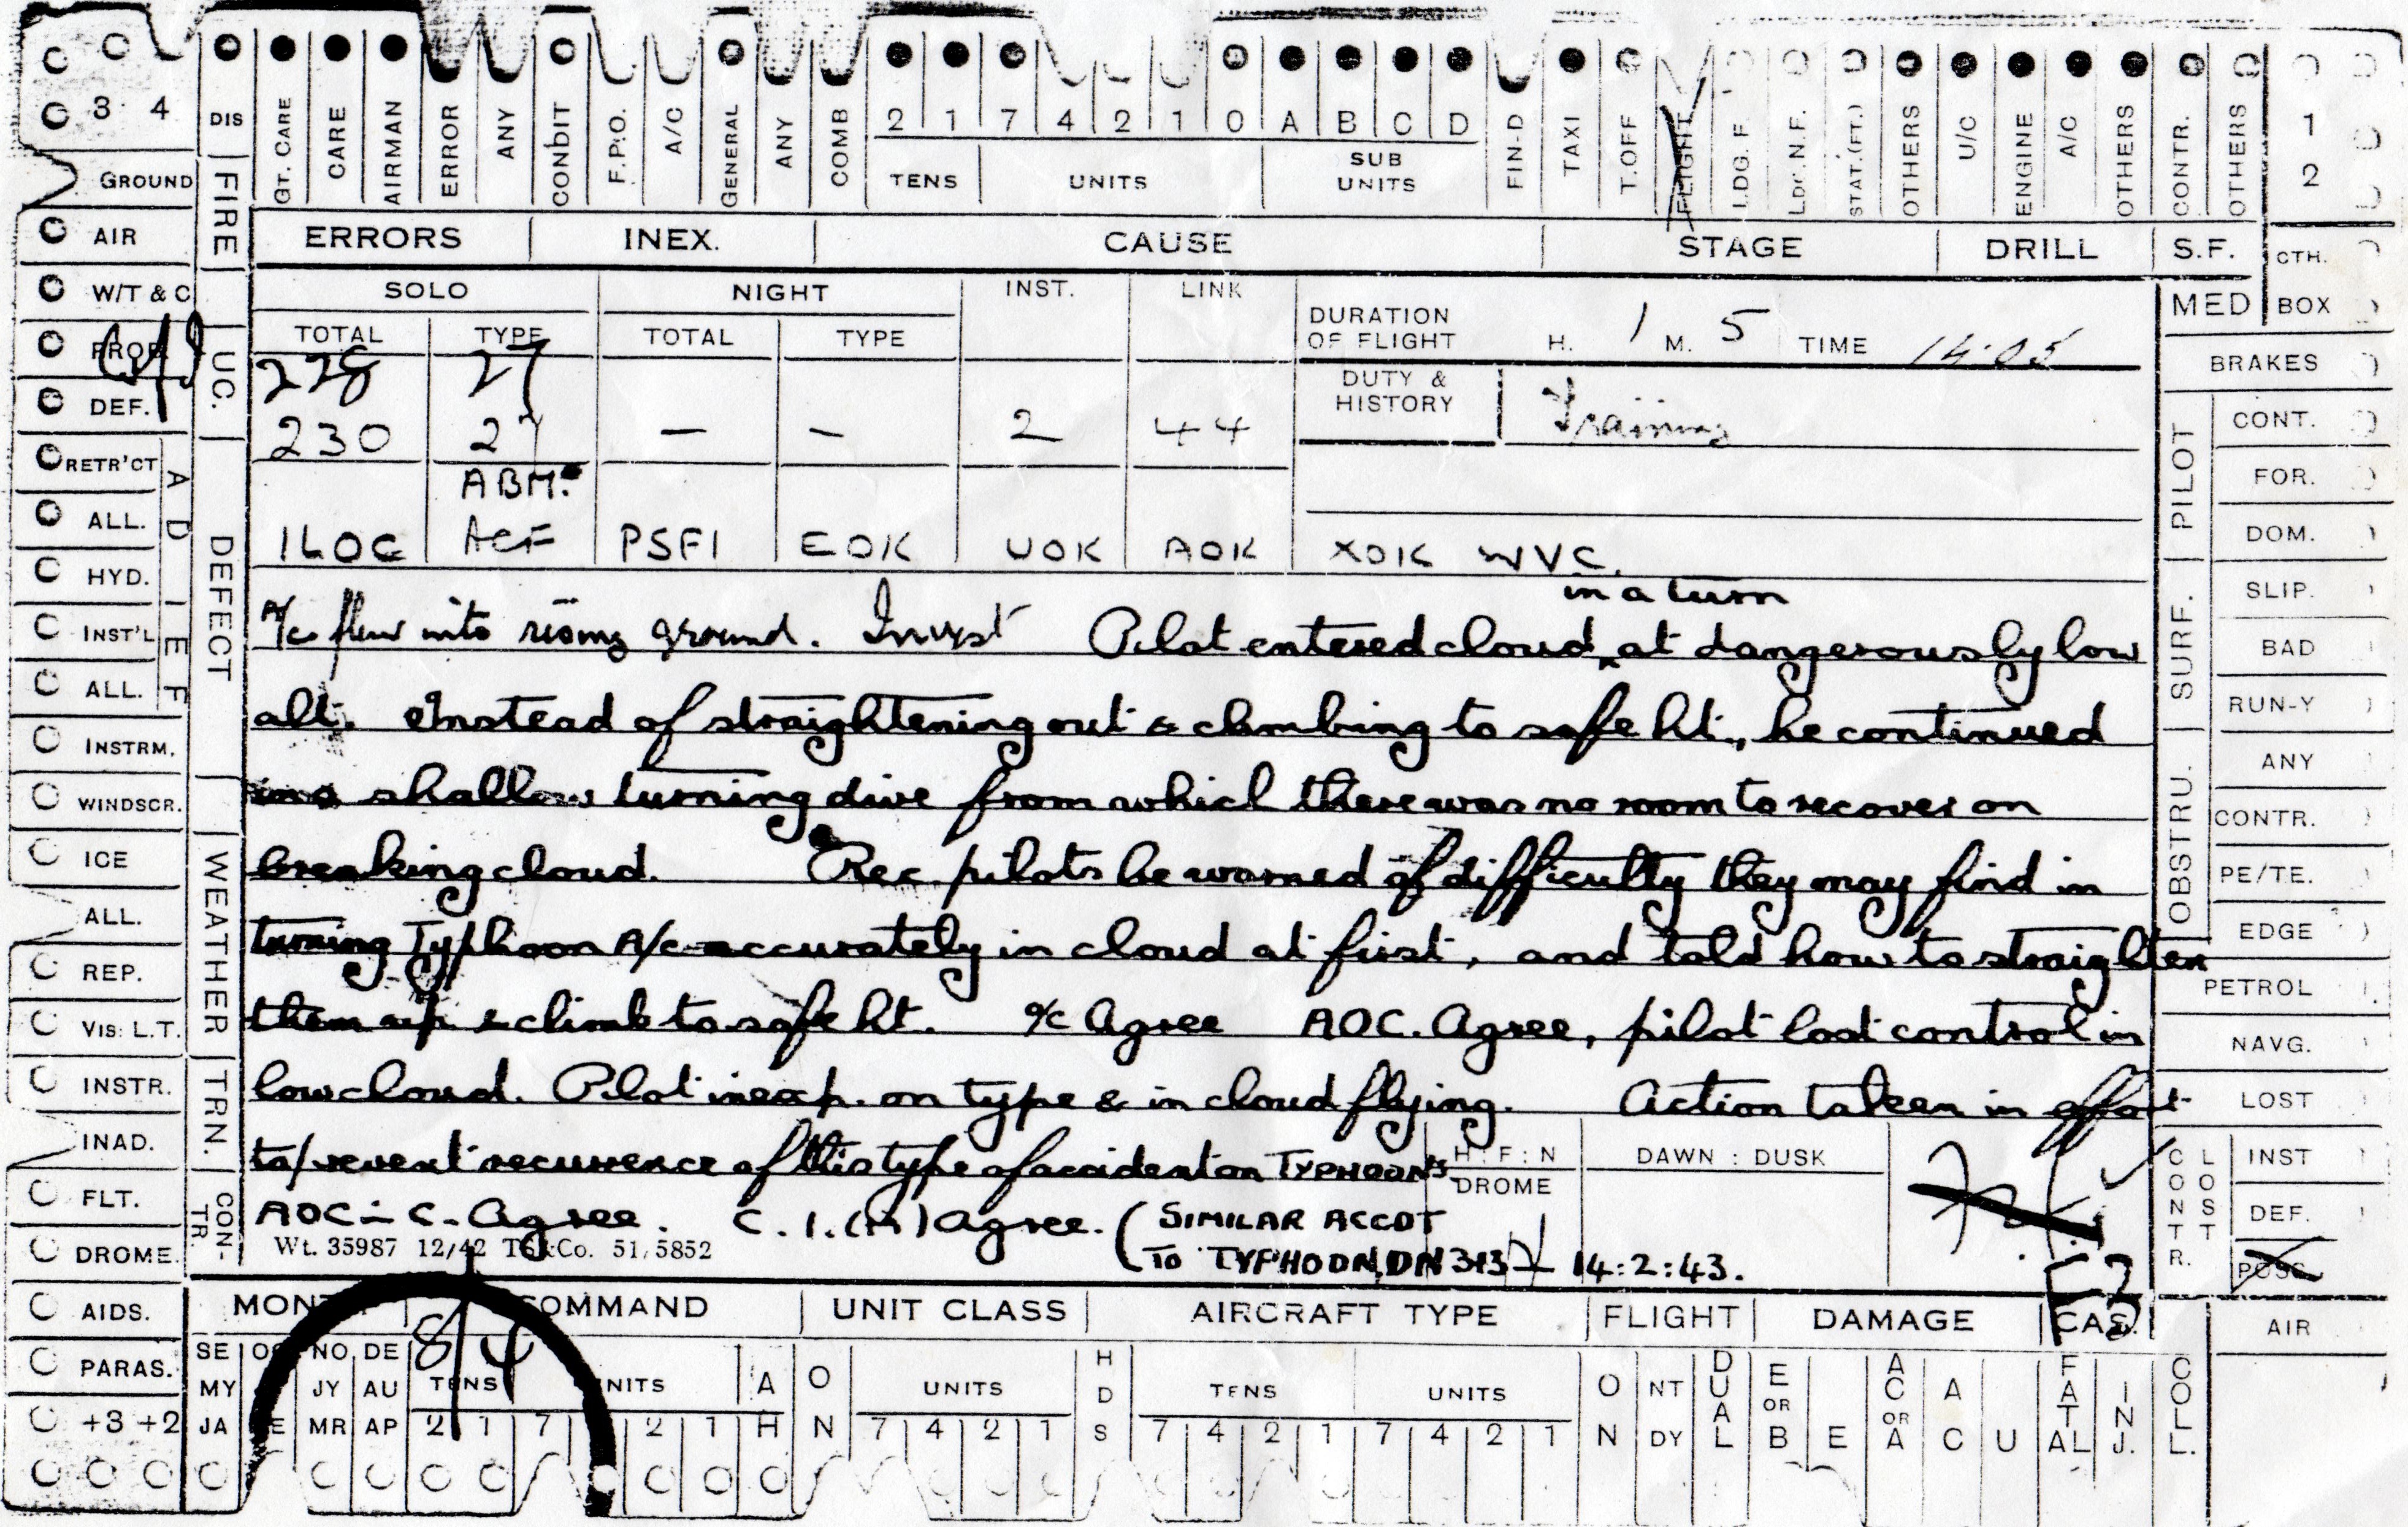 3 4 DIS GT. CARE CARE AIRMAN ERROR ANY CONDIT F.P.O. A/C GENERAL ANY COMB 2 1 7 4 2 1 0 A B C D FIN-D TAXI T.OFF FLIGHT LDG. F. LDG. N.F. STAT.(FT.) OTHERS U/C ENGINE A/C OTHERS CONTR. OTHERS 1 2
TENS UNITS SUB UNITS
GROUND FIRE
AIR ERRORS INEX. CAUSE STAGE DRILL S.F. CTH.
W/T & C SOLO NIGHT INST. LINK MED BOX
PROP. U.C. TOTAL TYPE TOTAL TYPE DURATION OF FLIGHT H. 1 M. 5 TIME 14.05 BRAKES
228 27
DEF. DUTY & HISTORY Training PILOT CONT.
230 27 — — 2 44
RETR'CT A D I E F DEFECT FOR.
ABM.
ALL. DOM.
1LOC ACF PSF1 EOK UOK AOK XOK WVC.
HYD. SURF. SLIP.
in a turn
INST'L A/c flew into rising ground. Invest Pilot entered cloud ^ at dangerously low BAD
ALL. alt. Instead of straightening out & climbing to safe ht., he continued RUN-Y
INSTRM. OBSTRU. ANY
WINDSCR. in a shallow turning dive from which there was no room to recover on CONTR.
ICE WEATHER breaking cloud. Rec. pilots be warned of difficulty they may find in PE/TE.
ALL. turning Typhoon A/c accurately in cloud at first, and told how to straighten EDGE
REP. PETROL
VIS: L.T. them up & climb to safe ht. O/C Agree AOC. Agree, pilot lost control in NAVG.
INSTR. TRN. low cloud. Pilot inexp. on type & in cloud flying. Action taken in effort LOST
INAD. to prevent recurrence of this type of accident on TYPHOONS. H : F : N DROME DAWN : DUSK CONTR. LOST INST
FLT. CON-TR. AOC-in-C. Agree. C.I.(A) agree. (SIMILAR ACCDT DEF.
DROME. Wt. 35987 12/42 Co. 51/5852 TO TYPHOON DN 313 14:2:43. POSS.
AIDS. MONTH COMMAND UNIT CLASS AIRCRAFT TYPE FLIGHT DAMAGE CAS. AIR
84
PARAS. SE NO DE TENS UNITS A O UNITS HDS TENS UNITS O NT DUAL E OR AC OR A FATAL INJ. COLL.
MY JY AU
+3 +2 JA MR AP 2 1 7 2 1 H N 7 4 2 1 7 4 2 1 7 4 2 1 N DY B E A C U